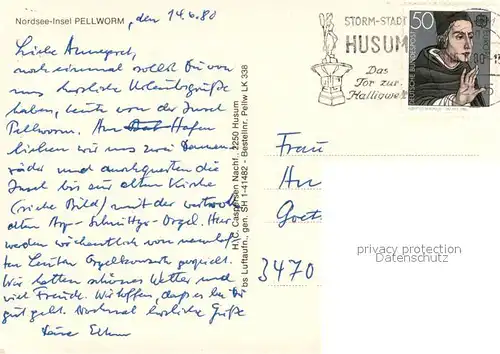 Nordsee-Insel PELLWORM, den 14.6.80
Liebe Annegret,
noch einmal sollst Du von
uns herzliche Urlaubsgrüße
haben, heute von der Insel
Pellworm. Am Hafen
liehen wir uns zwei Damen-
räder und durchquerten die
Insel bis zur alten Kirche
(siehe Bild) mit der wertvollen
alten Arp-Schnitger-Orgel. Hier
werden wöchentlich von namhaf-
ten Leuten Orgelkonzerte gespielt.
Wir hatten schönes Wetter und
viel Freude. Wir hoffen, daß es bei Dir
gut geht. Nochmal herzliche Grüße
Deine Eltern
H. W. Caspersen Nachf., 2250 Husum
bs Luftaufn., gen. SH 1-41482 - Bestellnr. Pellw LK 338
STORM-STADT
HUSUM
Das
Tor zur
Halligwelt
50
DEUTSCHE BUNDESPOST
Frau
An
Goet
3470
privacy protection
Datenschutz